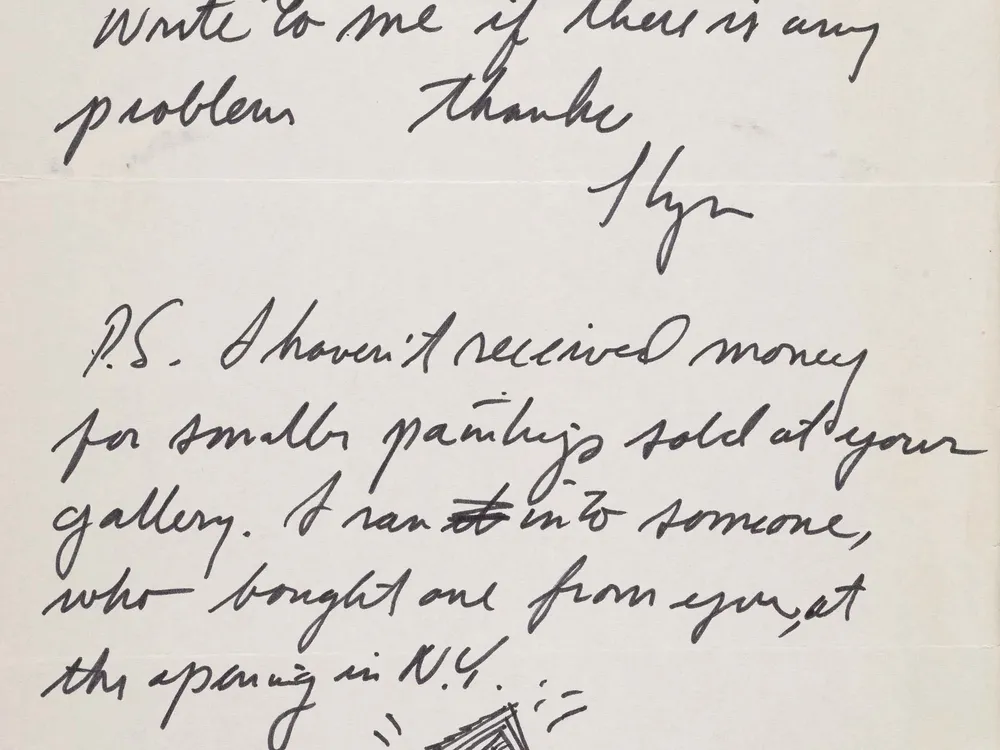 write to me if there is any
problem thanks
P.S. I haven't received money
for smaller paintings sold at your
gallery. I ran into someone,
who bought one from you, at
the opening in N.Y.